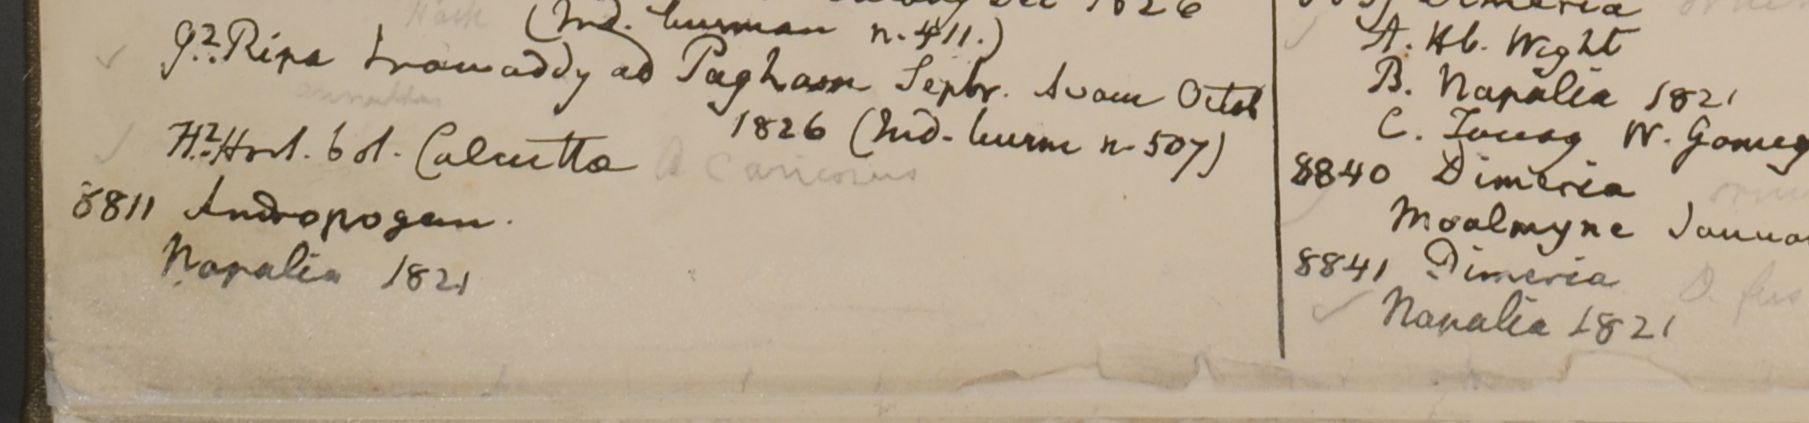 Dec 1826
(Ind. burman n. 411.)
G.2. Ripa Irawaddy ad Pagham Septbr. Avam Octob
1826 (Ind. burm n. 507)
H.2. Hort. bot. Calcutta
8811 Andropogon.
Napalia 1821
Dimeria
A. Hb. Wight
B. Napalia 1821
C. Tavoy W. Gomez
8840 Dimeria
Moalmyne Janua
8841 Dimeria
Napalia 1821